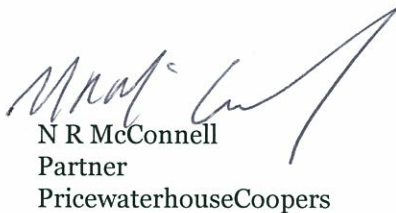 N R McConnell
Partner
PricewaterhouseCoopers